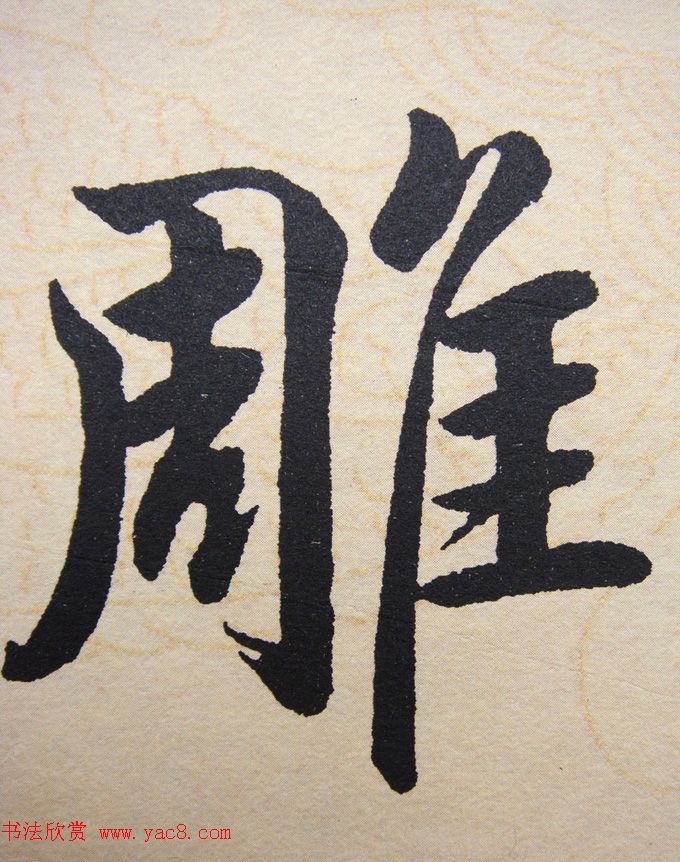 雕
书法欣赏 www.yac8.com